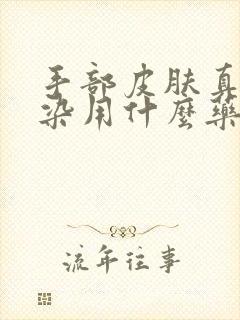 手部皮肤真
染用什麼藥
流年往事